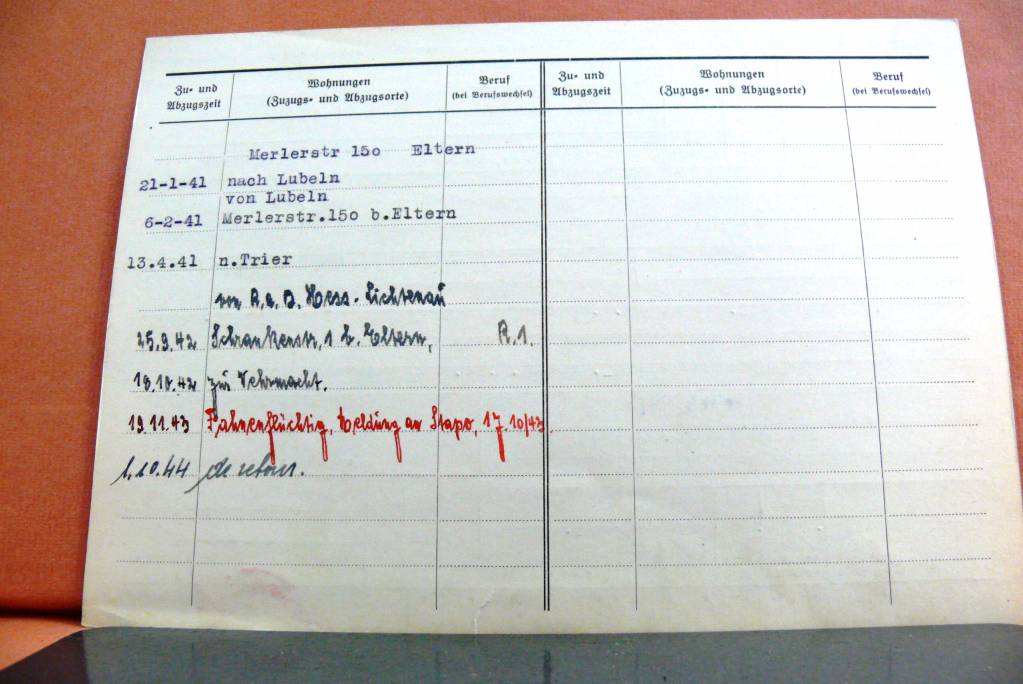 Zu- und Abzugszeit
Wohnungen
(Zuzugs- und Abzugsorte)
Beruf
(bei Berufswechsel)
Zu- und Abzugszeit
Wohnungen
(Zuzugs- und Abzugsorte)
Beruf
(bei Berufswechsel)
Merlerstr 15o Eltern
21-1-41 nach Lubeln
von Lubeln
6-2-41 Merlerstr.15o b.Eltern
13.4.41 n.Trier
von R.a.D. Hess. Lichtenau
25.9.42 Schrankenstr. 1 b. Eltern, R.1.
18.10.42 zur Wehrmacht.
19.11.43 Fahnenflüchtig, Meldung an Stapo, 17.10/43
1.10.44 de retour.